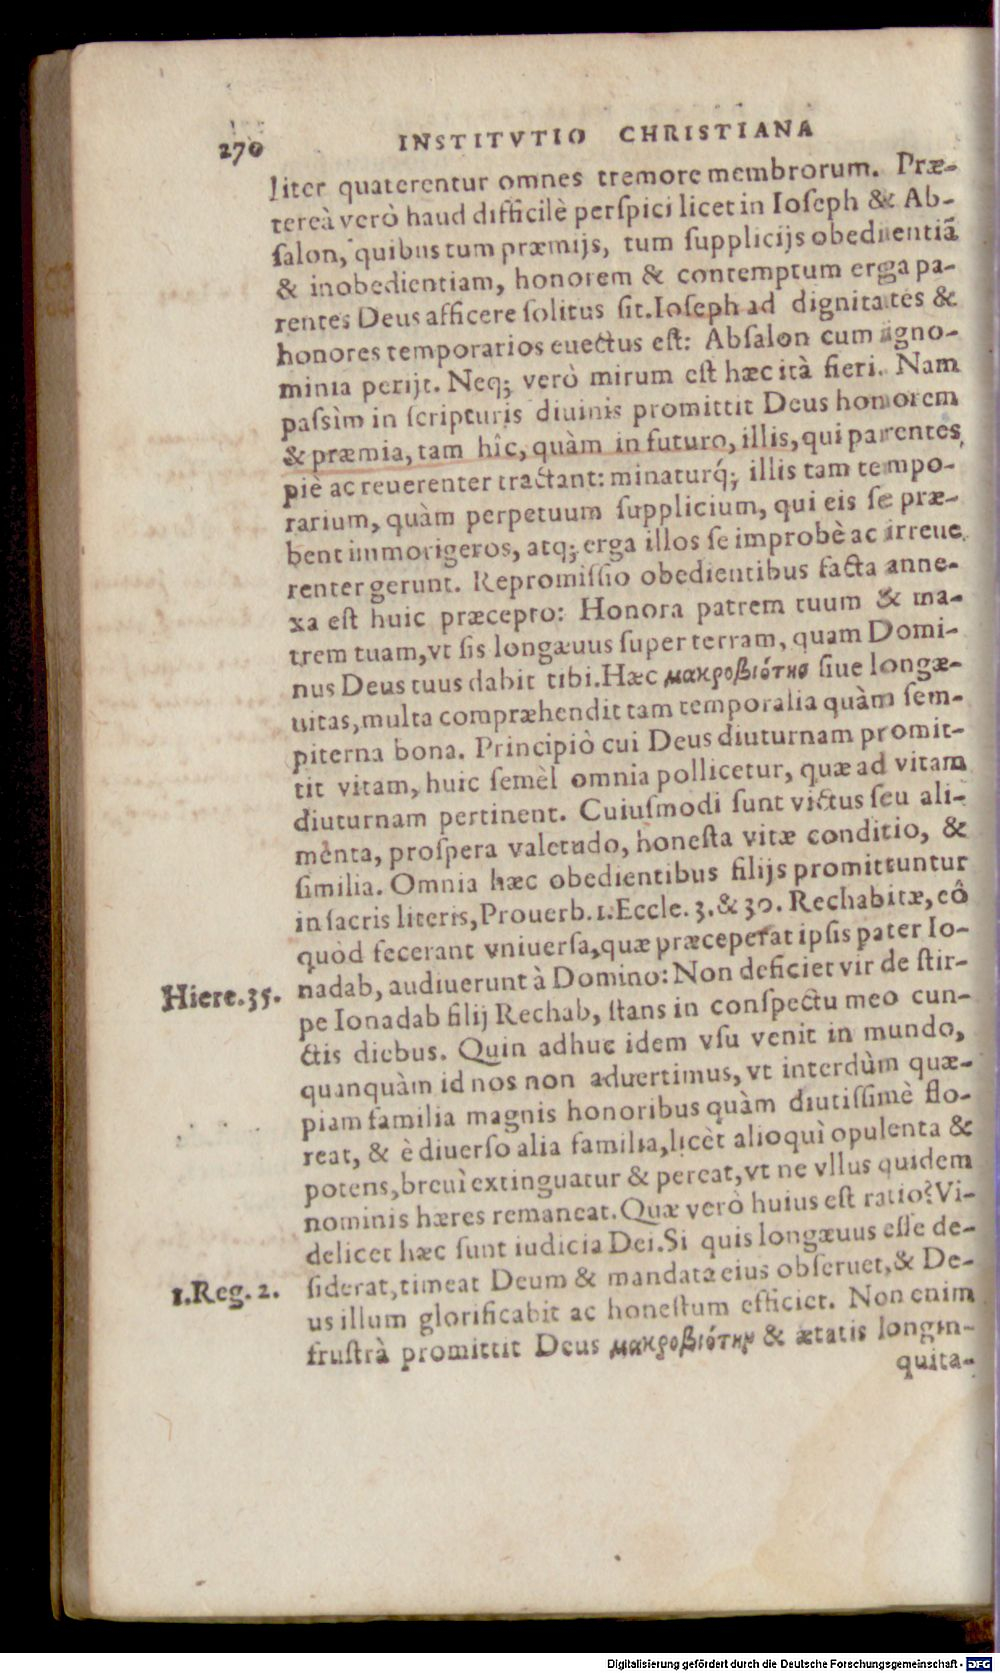 270 INSTITVTIO CHRISTIANA
liter quaterentur omnes tremore membrorum. Præ-
tereà verò haud difficilè perſpici licet in Ioſeph & Ab-
ſalon, quibus tum præmijs, tum ſupplicijs obedientiā
& inobedientiam, honorem & contemptum erga pa-
rentes Deus afficere ſolitus ſit. Ioſeph ad dignitates &
honores temporarios euectus eſt: Abſalon cum igno-
minia perijt. Neq; verò mirum eſt hæc ità fieri. Nam
paſsìm in ſcripturis diuinis promittit Deus honorem
& præmia, tam hîc, quàm in futuro, illis, qui parentes
piè ac reuerenter tractant: minaturq́; illis tam tempo-
rarium, quàm perpetuum ſupplicium, qui eis ſe præ-
bent immorigeros, atq; erga illos ſe improbè ac irreue
renter gerunt. Repromiſsio obedientibus facta anne-
xa eſt huic præcepto: Honora patrem tuum & ma-
trem tuam, vt ſis longæuus ſuper terram, quam Domi-
nus Deus tuus dabit tibi. Hæc μακροβιότης ſiue longæ-
uitas, multa compræhendit tam temporalia quàm ſem-
piterna bona. Principiò cui Deus diuturnam promit-
tit vitam, huic ſemèl omnia pollicetur, quæ ad vitam
diuturnam pertinent. Cuiuſmodi ſunt victus ſeu ali-
menta, proſpera valetudo, honeſta vitæ conditio, &
ſimilia. Omnia hæc obedientibus filijs promittuntur
in ſacris literis, Prouerb. 1. Eccle. 3. & 30. Rechabitæ, eô
quòd fecerant vniuerſa, quæ præceperat ipſis pater Io-
Hiere. 35. nadab, audiuerunt à Domino: Non deficiet vir de ſtir-
pe Ionadab filij Rechab, ſtans in conſpectu meo cun-
ctis diebus. Quin adhuc idem vſu venit in mundo,
quanquàm id nos non aduertimus, vt interdùm quæ-
piam familia magnis honoribus quàm diutiſſimè flo-
reat, & è diuerſo alia familia, licèt alioquì opulenta &
potens, breuì extinguatur & pereat, vt ne vllus quidem
nominis hæres remaneat. Quæ verò huius eſt ratio? Vi-
delicet hæc ſunt iudicia Dei. Si quis longæuus eſſe de-
1. Reg. 2. ſiderat, timeat Deum & mandata eius obſeruet, & De-
us illum glorificabit ac honeſtum efficiet. Non enim
fruſtrà promittit Deus μακροβιότην & ætatis longin-
quita-
Digitalisierung gefördert durch die Deutsche Forschungsgemeinschaft - DFG